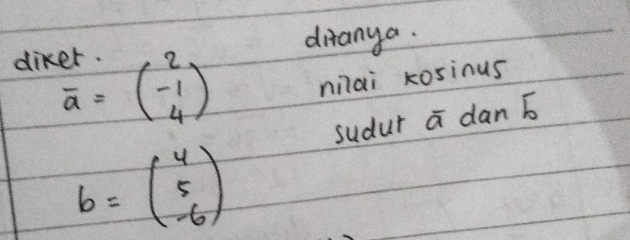 diket.
ā = (2 -1 4)
b = (4 5 -6)
ditanya.
nilai kosinus
sudut ā dan b̄